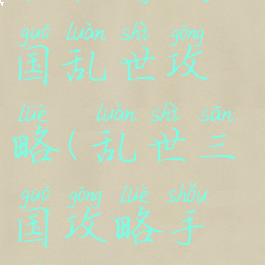 guó luàn shì gōng
国乱世攻
lüè luàn shì sān
略(乱世三
guó gōng lüè shǒu
国攻略手